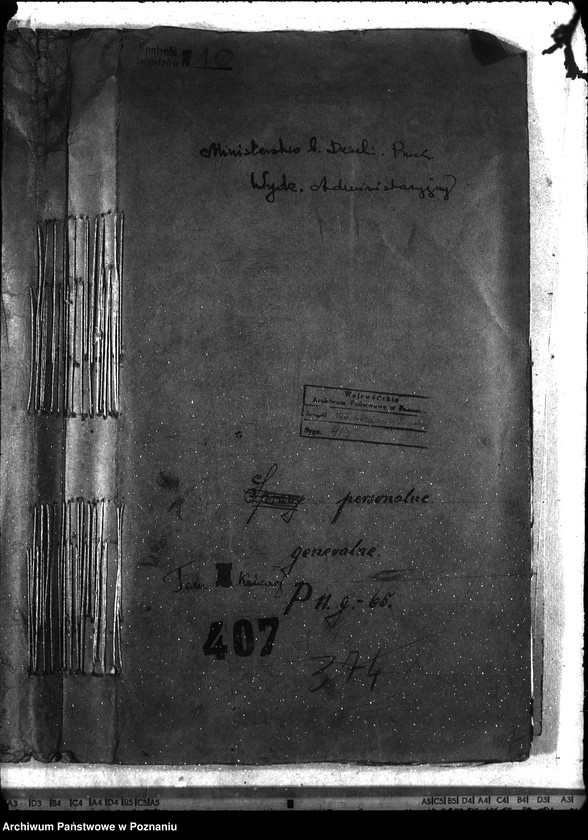 Kontrola
N 10
Ministerstwo b. Dzieln. Prusk.
Wydz. Administracyjny
Wojewódzkie
Archiwum Państwowe w Poznaniu
Sygn.
Sprawy personalne
generalne.
Tom
P n. g. - 65.
407
374
A3 D3 B4 C4 A4 D4 B5 C5 A5
A5 C5 B5 D4 A4 C4 B4 D3 A3
Archiwum Państwowe w Poznaniu